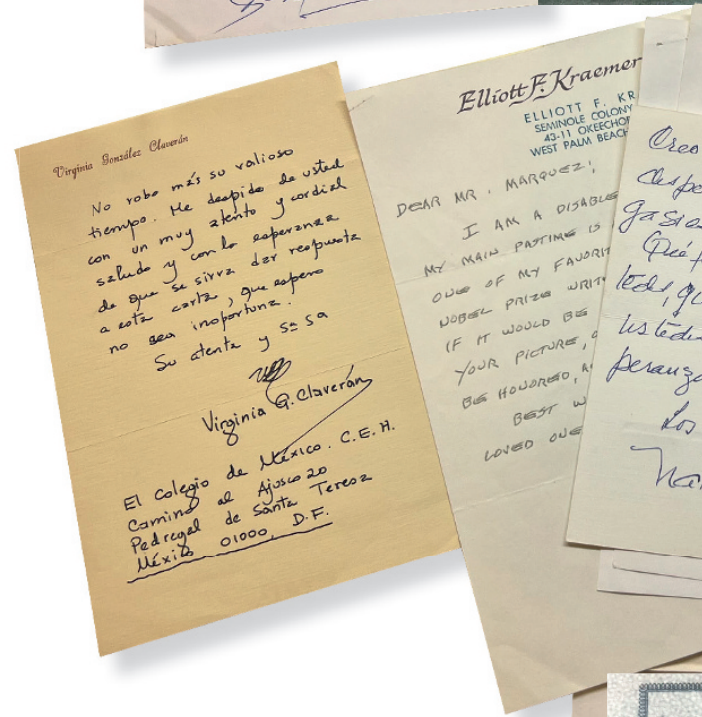 Virginia González Claverán
No robo más su valioso
tiempo. Me despido de usted
con un muy atento y cordial
saludo y con la esperanza
de que se sirva dar respuesta
a esta carta, que espero
no sea inoportuna.
Su atenta y Sª Sª
Virginia G. Claverán
El Colegio de México. C.E.H.
Camino al Ajusco 20
Pedregal de Santa Teresa
México 01000, D.F.
Elliott F. Kraemer
ELLIOTT F. KR
SEMINOLE COLONY
43-11 OKEECHOB
WEST PALM BEACH
DEAR MR. MARQUEZ;
I AM A DISABLE
MY MAIN PASTIME IS
ONE OF MY FAVORIT
NOBEL PRIZE WRIT
IF IT WOULD BE
YOUR PICTURE,
BE HONORED,
BEST W
LOVED ONE
Creo
despe
Qué
ustede
peranza
Los